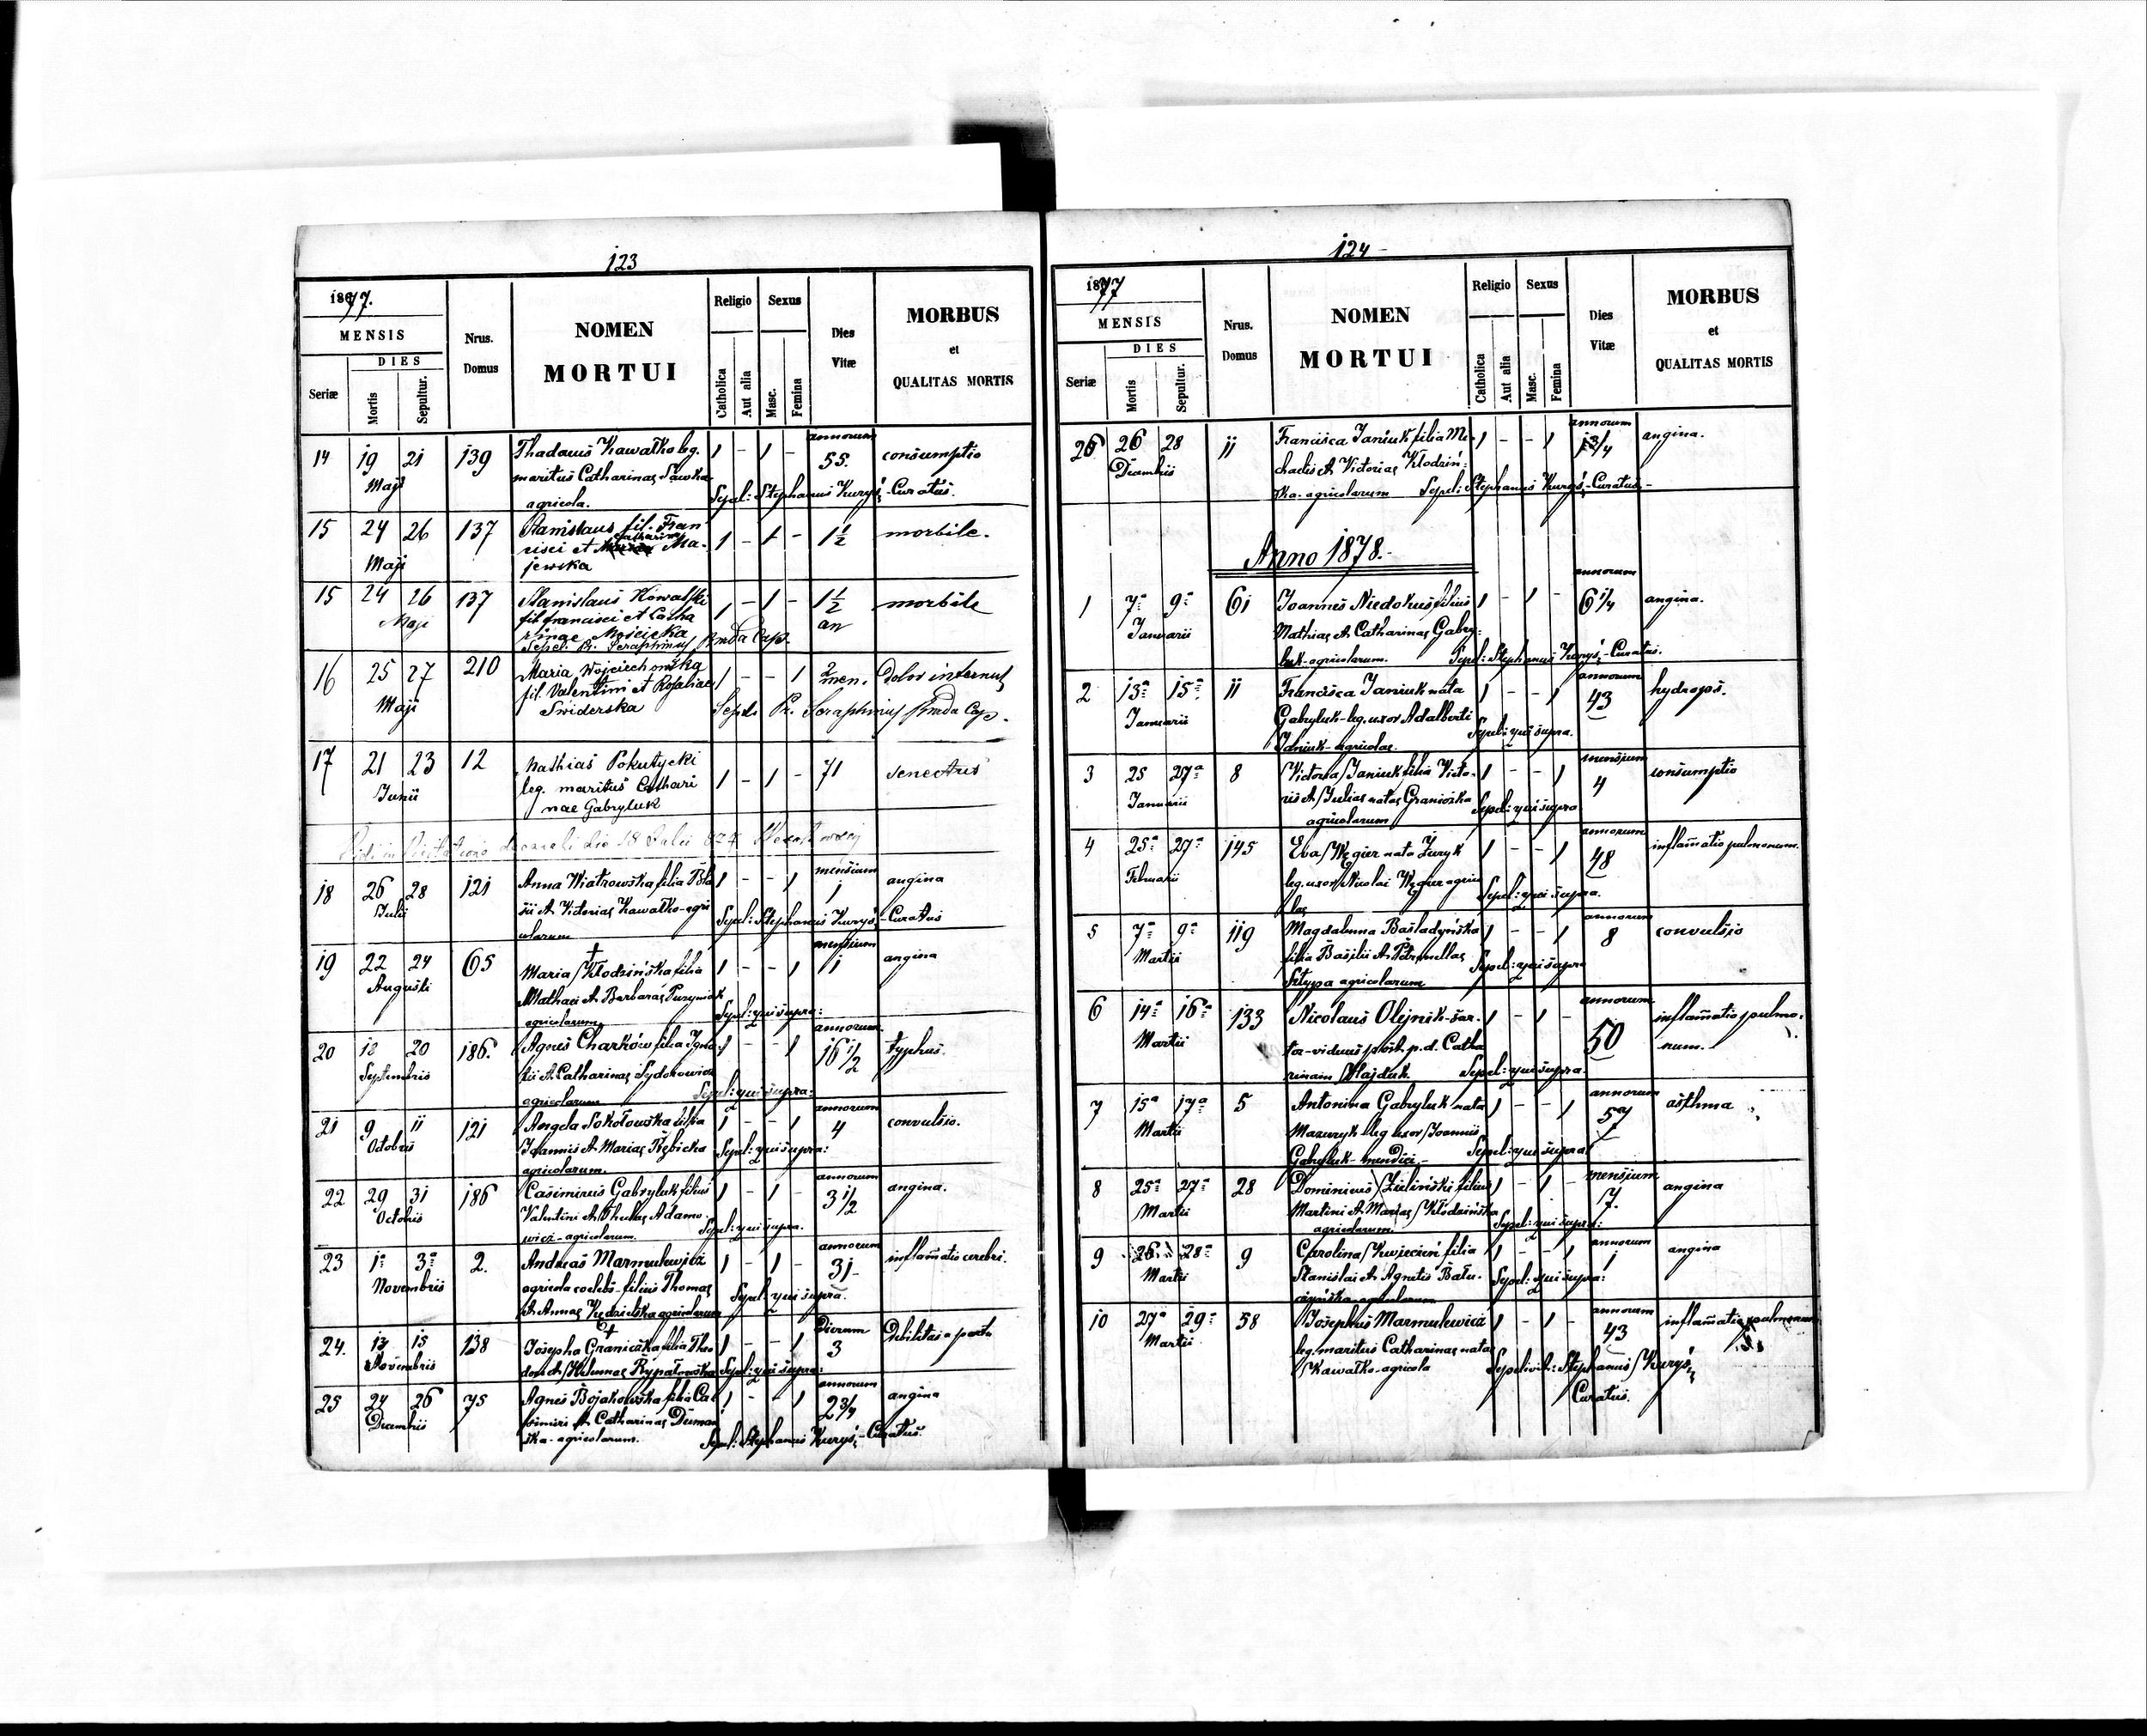 123
1877.
MENSIS
DIES
Seriæ
Mortis
Sepultur.
Nrus.
Domus
NOMEN
MORTUI
Religio
Catholica
Aut alia
Sexus
Masc.
Femina
Dies
Vitæ
MORBUS
et
QUALITAS MORTIS
14 19 21 139 Thadaeus Kawałko leg. 1 - 1 - annorum 55. consumptio
Maji maritus Catharinae
agricola. Sepel: Stephanus Kuryś - Curatus.
15 24 26 137 Stanislaus fil. Fran 1 - 1 - 1½ morbile.
cisci et Catharina Ma-
Maji jewska
15 24 26 137 Stanislaus Kowalski 1 - 1 - 1½ morbile
Maji fil francisci et Catha an
rinae Mościcka
Sepel. Pr. Seraphinus Cap.
16 25 27 210 Maria Wojciechowska 1 - - 1 2 men. Dolor internus
Maji fil. Valentini et Rosaliae
Swiderska Sepel. Pr. Seraphinus Cap.
17 21 23 12 Mathias Pokutycki 1 - 1 - 71 senectus
Junii leg. maritus Cathari
nae Gabryluk
18 26 28 121 Anna Wiatrowska filia Bla 1 - - 1 mensium 1 angina
Julii sii et Victoriae Kawałko - agri
colarum Sepel: Stephanus Kuryś - Curatus
19 22 24 65 Maria Kłodzińska filia 1 - - 1 mensium 11 angina
Augusti Mathaei et Barbarae
agricolarum Sepel: qui supra:
20 18 20 186. Agnes Charków filia Igna 1 - - 1 annorum 16 1/2 typhus.
Septembris tii et Catharinae Sydorowicz
agricolarum Sepel: qui supra:
21 9 11 121 Angela Sokołowska filia 1 - - 1 annorum 4 convulsio.
Octobris Joannis et Mariae Rębicka
agricolarum. Sepel: qui supra:
22 29 31 186 Casimirus Gabryluk filius 1 - 1 - annorum 3 1/2 angina.
Octobris Valentini et Theclae Adamo
wicz - agricolarum. Sepel: qui supra.
23 1 3 2. Andreas Marmulewicz 1 - 1 - annorum 31 inflam̄atio cerebri.
Novembris agricola coelebs - filius Thomae
et Annae agricolarum Sepel: qui supra.
24. 13 15 138 Josepha Graniczka filia Theo 1 - - 1 Dierum 3 Debilitas a partu
Novembris dori et Helenae Sepel: qui supra:
25 24 26 75 Agnes Bojakowska filia Ca 1 - - 1 annorum 2 3/4 angina
Decembris simiri et Catharinae
ska - agricolarum. Sepel: Stephanus Kuryś - Curatus.
124
1877
MENSIS
DIES
Seriæ
Mortis
Sepultur.
Nrus.
Domus
NOMEN
MORTUI
Religio
Catholica
Aut alia
Sexus
Masc.
Femina
Dies
Vitæ
MORBUS
et
QUALITAS MORTIS
26 26 28 11 Francisca Janiuk filia Mi- 1 - - 1 annorum 1 3/4 angina.
Decembris chaelis et Victoriae Kłodziń-
ska - agricolarum Sepel: Stephanus Kuryś - Curatus -
Anno 1878.
1 7 9 61 Joannes Niedokuś filius 1 - 1 - annorum 6 1/4 angina.
Januarii Mathiae et Catharinae Gabry-
luk - agricolarum. Sepel: Stephanus Kuryś - Curatus.
2 13 15 11 Francisca Janiuk nata 1 - - 1 annorum 43 hydrops.
Januarii Gabryluk - leg. uxor Adalberti
Janiuk - agricolae. Sepel: qui supra.
3 25 27 8 Victoria Janiuk filia Victo- 1 - - 1 mensium 4 consumptio
Januarii ris et Juliae natae Graniczka
agricolarum Sepel: qui supra
4 25 27 145 Eva Węgier nata Żuryk 1 - - 1 annorum 48 inflam̄atio pulmonum.
Februarii leg. uxor Nicolai Węgier agrico
lae Sepel: qui supra.
5 7 9 119 Magdalena Basladyńska 1 - - 1 annorum 8 convulsio
Martii filia Basilii et Petronellae
Sztypa agricolarum Sepel: qui supra
6 14 16 133 Nicolaus Olejnik - sar. 1 - 1 - annorum 50 inflam̄atio pulmo-
Martii tor - viduus post p. d. Catha num.
rinam Hajduk. Sepel: qui supra.
7 15 17 5 Antonina Gabryluk nata 1 - - 1 annorum 57 asthma
Martii Mazuryk leg uxor Joannis
Gabryluk - mendici - Sepel: qui supra
8 25 27 28 Dominicus Zieliński filius 1 - 1 - mensium 7. angina
Martii Martini et Mariae Kłodzińska
agricolarum. Sepel: qui supra:
9 26 28 9 Carolina Kwiecień filia 1 - - 1 annorum 1 angina
Martii Stanislai et Agnetis Batu-
agricolarum Sepel: qui supra:
10 27 29 58 Josephus Marmulewicz 1 - 1 - annorum 43 inflam̄atio pulmonum
Martii leg. maritus Catharinae natae
Kawałko - agricola Sepelivit: Stephanus Kuryś,
Curatus.